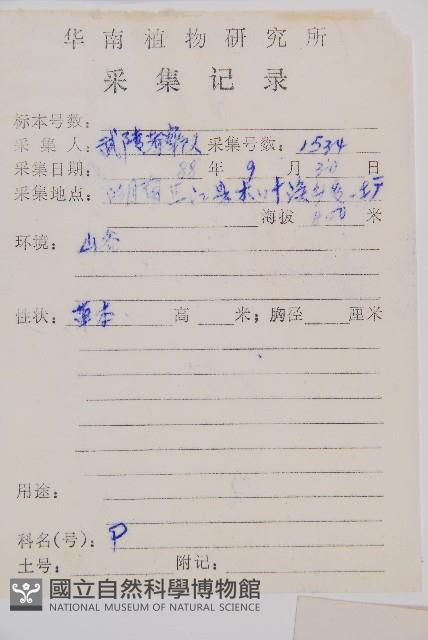 华南植物研究所
采集记录
标本号数:
采集人: 武陵 采集号数: 1534
采集日期: 88 年 9 月 30 日
采集地点: 江县
海拔 米
环境: 山谷
性状: 草本 高 米; 胸径 厘米
用途:
科名(号): P
土号: 附记:
國立自然科學博物館
NATIONAL MUSEUM OF NATURAL SCIENCE